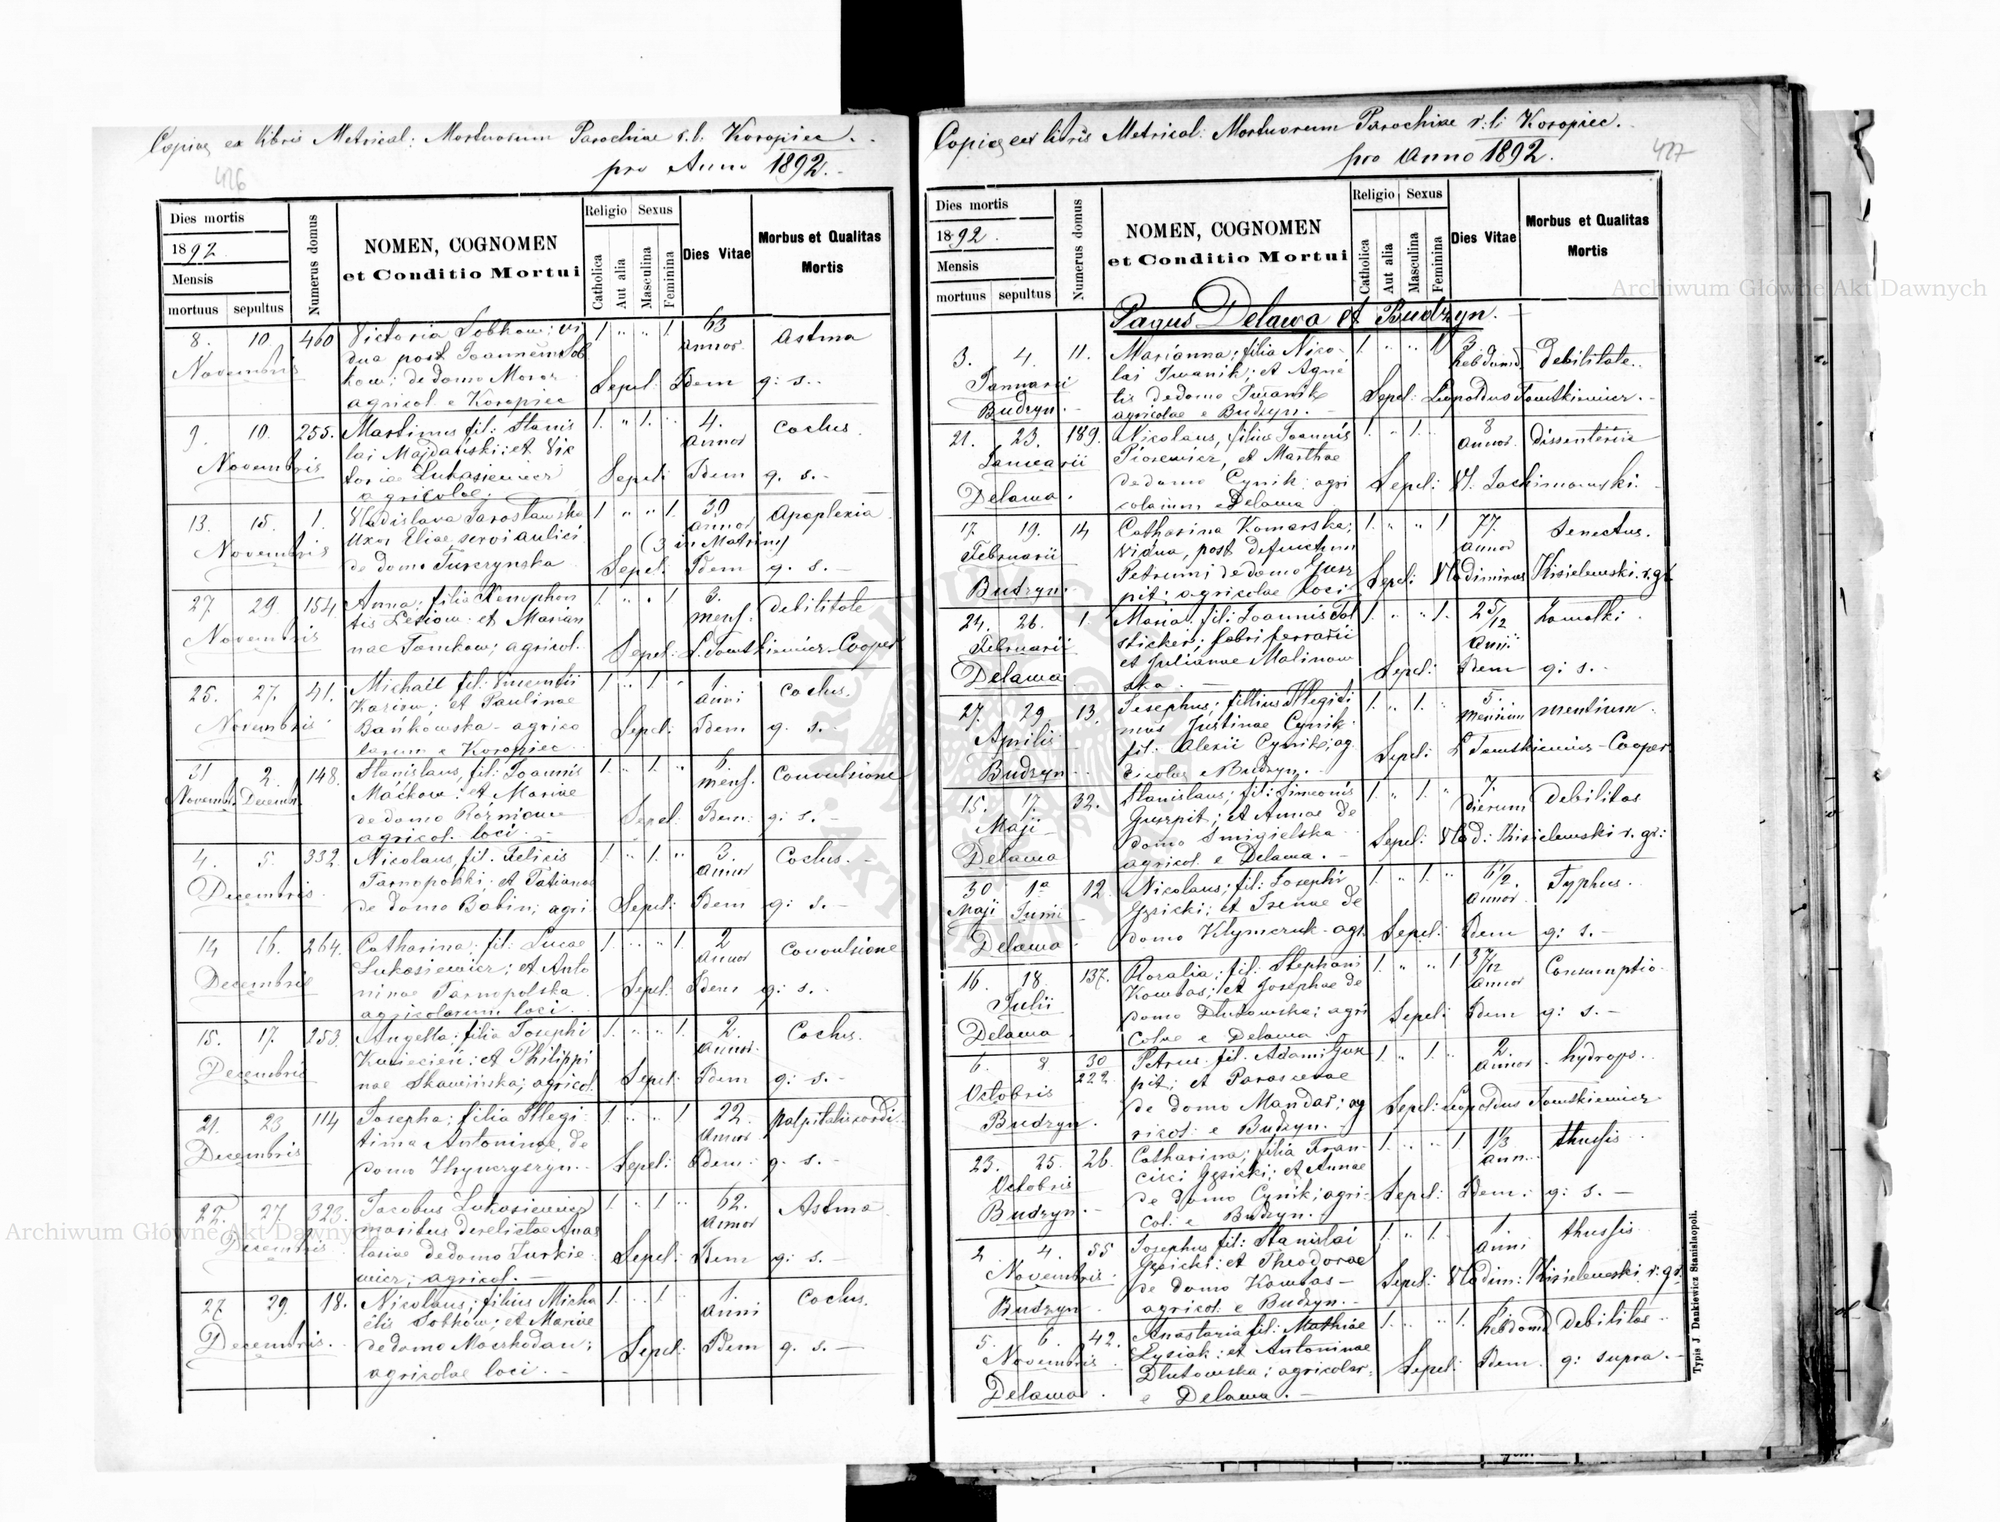 Copia ex libris Metrical: Mortuorum Parochiae r.l. Koropiec.
pro Anno 1892.
426
Dies mortis
1892
Mensis
mortuus sepultus
Numerus domus
NOMEN, COGNOMEN
et Conditio Mortui
Religio Sexus
Catholica
Aut alia
Masculina
Feminina
Dies Vitae
Morbus et Qualitas
Mortis
8. 10. 460 Victoria Sobkow: vi 1. " " 1. 63 Astma
Novembris dua post Joannem Sob annor.
kow: de domo Moroz Sepel: Idem q: s.-
agricol. e Koropiec
9. 10. 255. Martinus fil: Stanis 1. " 1. " 4. Coclus.
Novembris lai Majdański: et Vic annor
toriae Lukasiewicz Sepel: Idem q. s.-
agricolae.
13. 15. 1. Vladislava Jarosławska 1 " " 1. 39 Apoplexia
Novembris uxor Eliae servi aulici annor
(3 in Matrim)
de domo Turczynska Sepel: Idem q. s.-
27. 29. 154. Anna; filia Xenophon 1. " " 1 3. debilitate
Novembris tis Lesiow: et Marian mens.
nae Tomkow; agricol. Sepel: L. Towtkiewicz-Cooper
25. 27. 41. Michaël fil: Vincentii 1 " 1 " 1 Coclus.
Novembris Kariow; et Paulinae anni
Bańkowska- agrico Sepel: Idem q. s.-
larum e Koropiec
31 2. 148. Stanislaus, fil: Joannis 1. " 1. " 6 Convulsione
Novemb. Decemb. Maćkow: et Mariae mens.
de domo Sepel: Idem: q: s.-
agricol. loci.-
4. 5. 332. Nicolaus, fil. Felicis 1. " 1. " 3. Coclus.-
Decembris Tarnopolski; et Tatianae annor
de domo Bobin; agri. Sepel: Idem q: s.-
14 16. 264. Catharina: fil: Lucae 1. " " 1. 2 Convulsione
Decembris Lukasiewicz; et Anto annor
ninae Tarnopolska Sepel: Idem q: s.-
agricolarum loci.
15. 17. 253. Angella; filia Josephi 1. " " 1. 2. Coclus.
Decembris et Philippi annor.
nae Skawińska; agricol. Sepel: Idem q: s.-
21. 23. 114 Josepha; filia Illegi- 1. " " 1 22. palpitatis cordi.
Decembris tima Antoninae, de annor
domo Hrynczyszyn.- Sepel: Idem: q. s.-
25. 27. 323. Jacobus Lukasiewicz 1. " 1 " 62. Astma
Decembris maritus derelictae Anas annor
tasiae de domo Turkie- Sepel: Idem q: s.-
wicz; agricol.-
27 29. 18. Nicolaus; filius Micha 1. " 1 " 1 Coclus.
Decembris. elis Sobkow; et Mariae anni
de domo Moschodan; Sepel: Idem q. s.-
agricolae loci.-
Copia ex libris Metrical: Mortuorum Parochiae r: l: Koropiec.
pro Anno 1892.
427
Dies mortis
1892.
Mensis
mortuus sepultus
Numerus domus
NOMEN, COGNOMEN
et Conditio Mortui
Religio Sexus
Catholica
Aut alia
Masculina
Feminina
Dies Vitae
Morbus et Qualitas
Mortis
Pagus Delawa et Budzyn.
3. 4. 11. Marianna; filia Nico- 1. " " 1 3 debilitate.
Januarii lai Iwanik; et Agne hebdomd
Budzyn.- tis de domo Iwanik Sepel: Leopoldus Towtkiewicz.-
agricolae e Budzyn.-
21. 23. 189. Nicolaus, filius Joannis 1. " 1. " 8 dissenteria
Januarii Piorewicz, et Marthae annor.
Delawa. de domo Cynik: agri Sepel: Vl. Lachimowski.-
colarum e Delawa
17. 19. 14 Catharina Komarska; 1. " " 1 77. Senectus.
Februarii vidua, post defunctum annor
Budzyn. Petrumi de domo Gusz Sepel: Vladimirus Kisielewski r. gr.
pit: agricolae loci.
24. 26. 1. Maria: fil: Joannis Tol 1. " " 1. 2 5/12 Komotki.
Februarii sticker; fabri ferrarii anni
Delawa et Julianae Malinow Sepel: Idem q: s.-
ska.-
27. 29. 13. Josephus; filius Illegiti 1. " 1. " 5. mentium.
Aprilis mus Justinae Cynik: mensium
Budzyn.. fil: Alexii Cynik; ag Sepel: L Towtkiewicz-Cooper
ricolae e Budzyn.
15. 17. 32. Stanislaus; fil: Simeonis 1. " 1. " 7. debilitas
Maji Guszpit; et Annae de dierum
Delawa domo Smigielska Sepel: Vlad: Kisielewski r. gr:
agricol e Delawa.-
30 1a 12. Nicolaus; fil: Josephi 1. " 1. " 6 1/2. Typhus.
Maji Junii Gęsicki; et Irenae de annor.
Delawa domo Klymczuk- agr. Sepel: Idem q: s.-
16. 18 137. Rosalia; fil: Stephani 1. " " 1 3 7/12 Consumptio.
Julii Kowbas; et Josephae de annor
Delawa domo Dlutowska; agri Sepel: Idem q: s.-
colae e Delawa
6. 8 30 Petrus: fil: Adami Gusz 1. " 1. " 2. hydrops.
222. pit; et Parascevae annor.
Octobris de domo Mandas; ag Sepel: Leopoldus Towtkiewicz
Budzyn. ricol: e Budzyn.-
23. 25. 26. Catharina; filia Fran- 1. " " 1 1 1/3 thussis
Octobris cisci Gęsicki; et Annae ann.
Budzyn.- de domo Cynik; agri- Sepel: Idem: q: s.-
col: e Budzyn.-
2 4. 55 Josephus fil: Stanislai 1. " 1. 1 thussis
Novembris Gęsicki: et Theodorae anni
Budzyn de domo Kowbas- Sepel: Vladim: Kisielewski r: gr.
agricol: e Budzyn.-
5. 6. 42. Anastazia fil: Mathiae 1. " " 1. hebdomd debilitas
Novembris Łysiak: et Antoninae
Delawa. Dlutowska; agricolar. Sepel: Idem. q: supra.-
e Delawa.-
Typis J Dankiewicz Stanislaopoli.
Archiwum Główne Akt Dawnych
Archiwum Główne Akt Dawnych